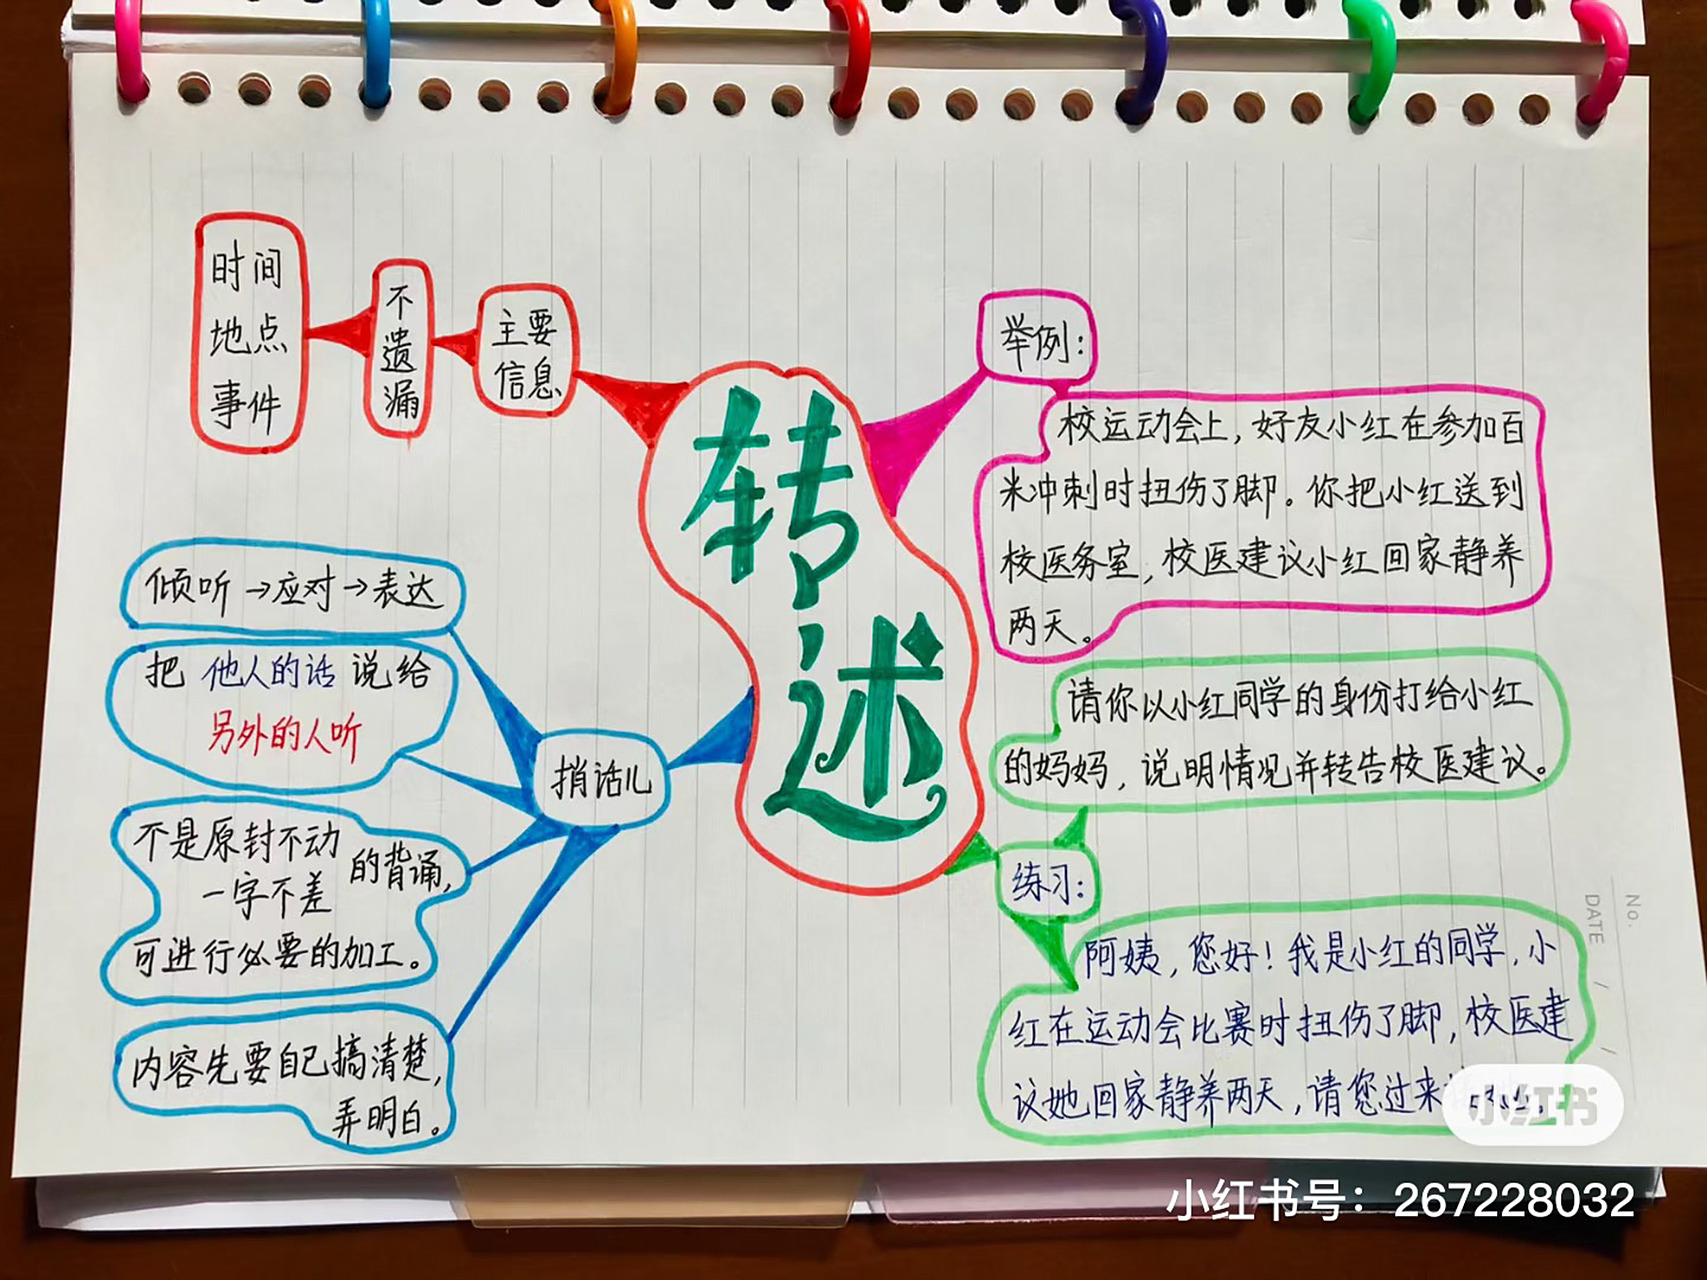 转述
主要
信息
不遗漏
时间
地点
事件
捎话儿
倾听→应对→表达
把 他人的话 说给
另外的人听
不是原封不动
一字不差
的背诵,
可进行必要的加工。
内容先要自己搞清楚,
弄明白。
举例:
校运动会上,好友小红在参加百
米冲刺时扭伤了脚。你把小红送到
校医务室,校医建议小红回家静养
两天。
请你以小红同学的身份打给小红
的妈妈,说明情况并转告校医建议。
练习:
阿姨,您好!我是小红的同学,小
红在运动会比赛时扭伤了脚,校医建
议她回家静养两天,请您过来
No.
DATE / /
小红书
小红书号:267228032